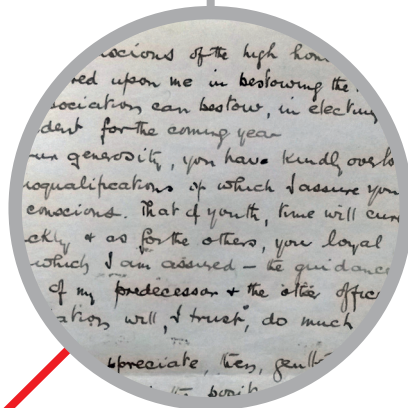 scious of the high hon
red upon me in bestowing the
sociation can bestow, in electing
dent for the coming year
ur generosity, you have kindly overlo
isqualifications of which I assure you
conscious. That of youth, time will cure
ckly & as for the others, you loyal
which I am assured - the guidance
of my predecessor & the other offic
ation will, I trust, do much
appreciate, then, gentl
posit